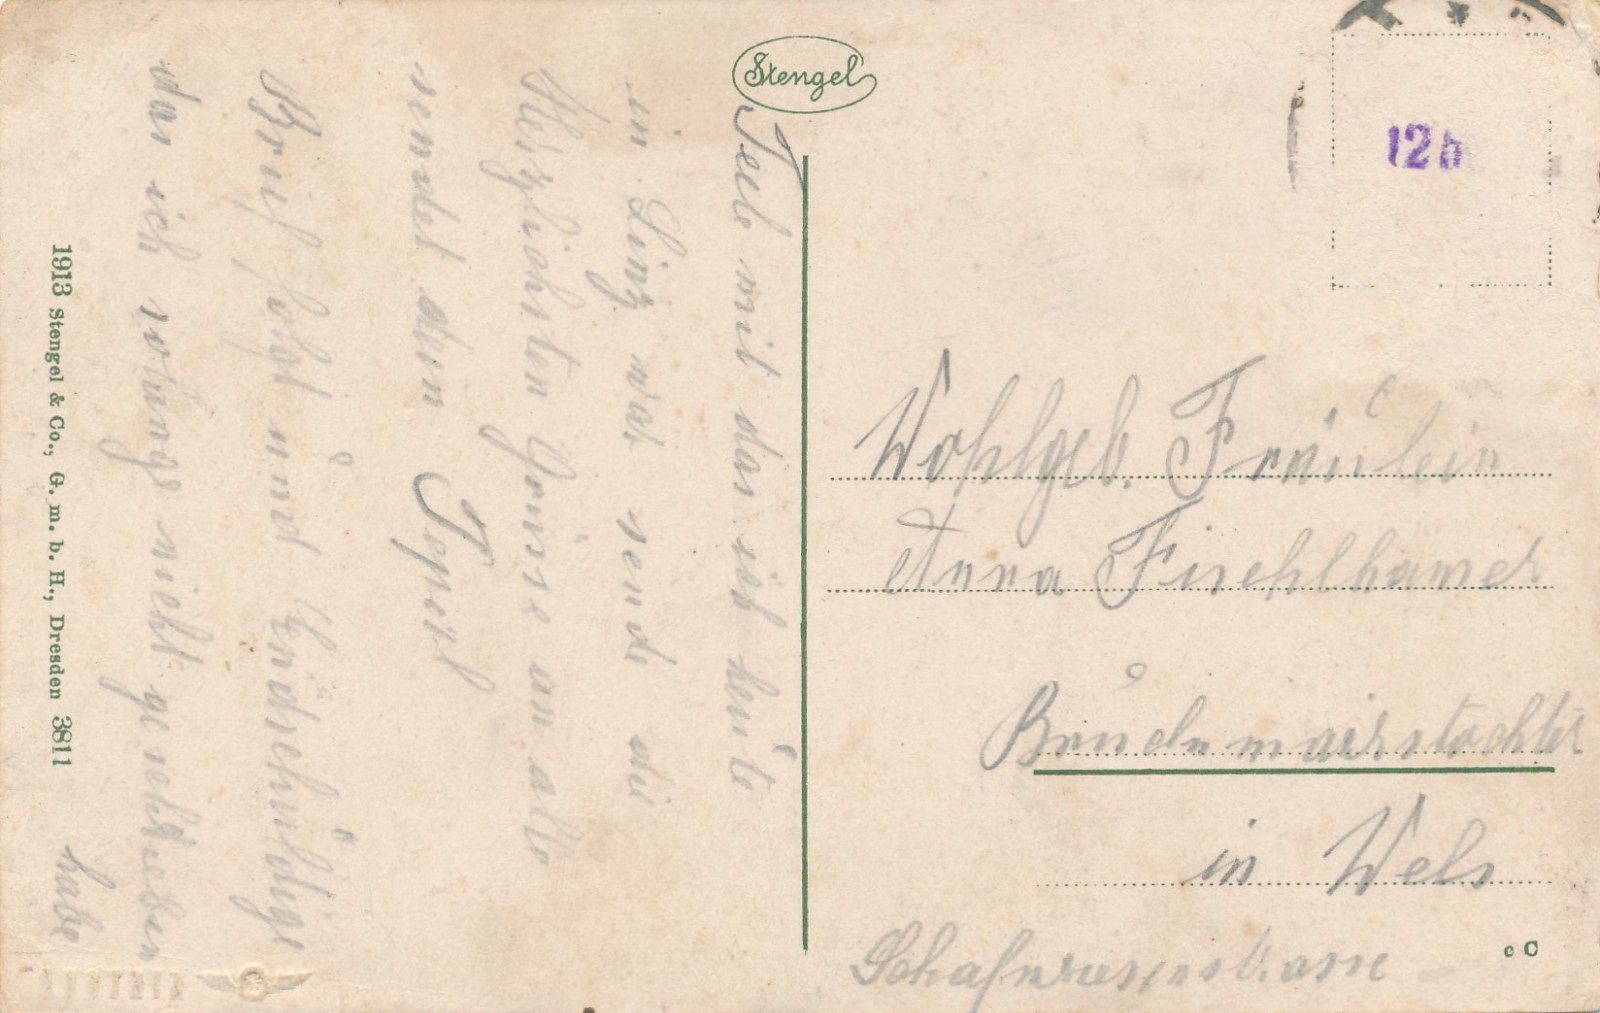 Stengel
12h
Teile mit das ich heute
in Linz war sende die
Herzlichsten Grüsse an alle
sendet dein Peperl
Brief folgt und Endschuldige
das ich solange nicht geschrieben
habe
1913 Stengel & Co., G. m. b. H., Dresden 3811
Wohlgeb. Fräulein
Anna Fischlhamer
in Wels
c C